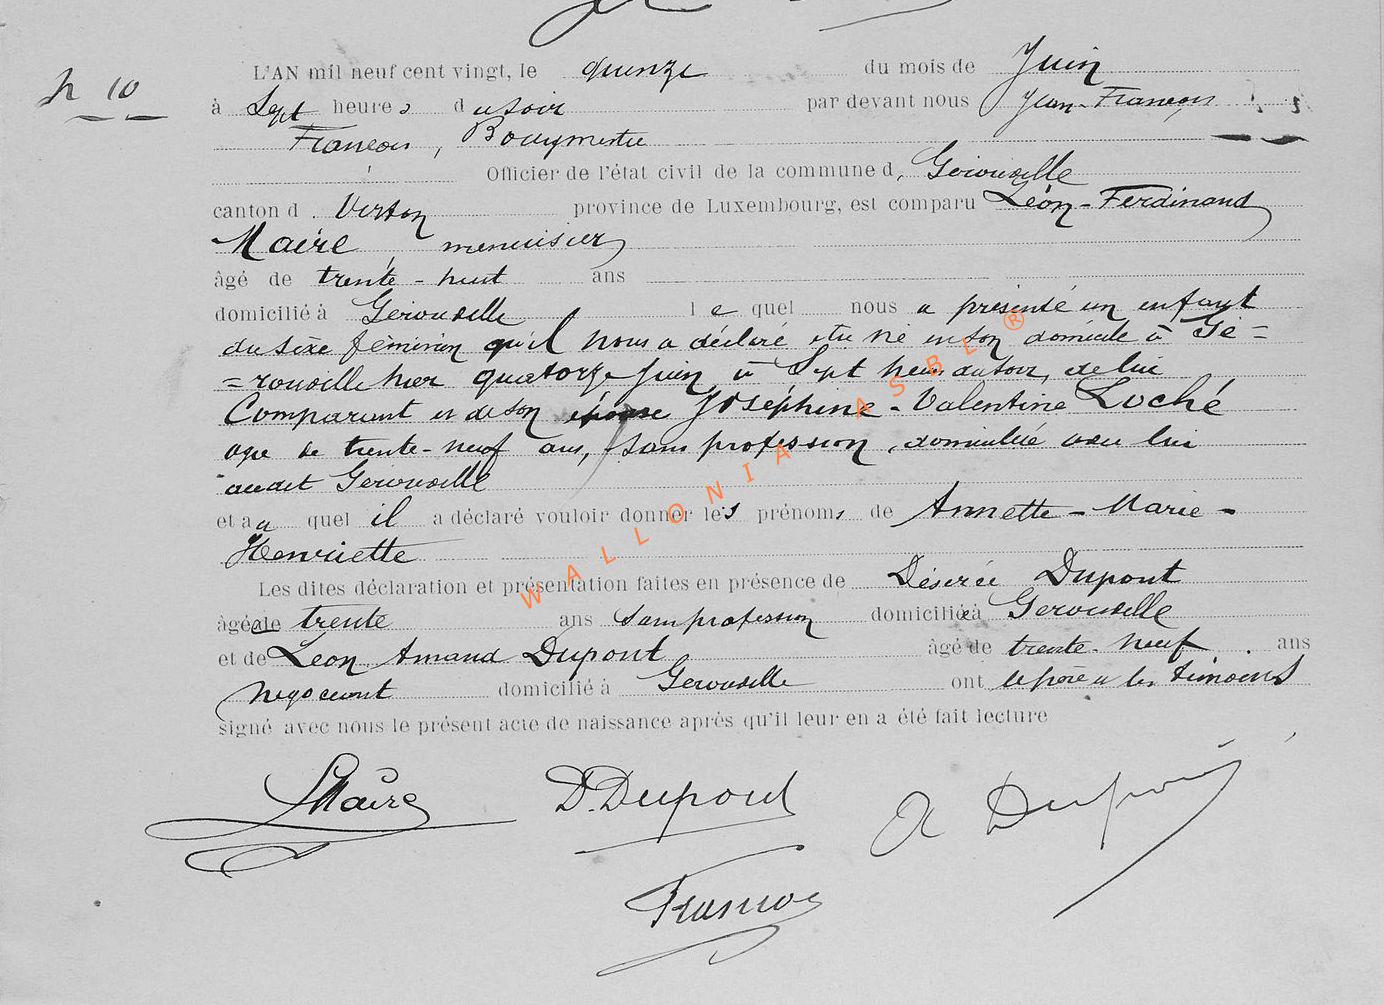 N 10
L'AN mil neuf cent vingt, le quinze du mois de Juin
à Sept heures du soir par devant nous Jean-François
François, Bourgmestre
Officier de l'état civil de la commune d, Gérouville
canton d Virton province de Luxembourg, est comparu Léon-Ferdinand
Maire menuisier
âgé de trente-huit ans
domicilié à Gérouville le quel nous a présenté un enfant
du sexe féminin qu'il nous a déclaré être né en son domicile à Gé=
=rouville hier quatorze Juin à Sept heures du soir, de lui
Comparant et de son épouse Joséphine-Valentine Loché
agée de trente-neuf ans, sans profession, domiciliée avec lui
audit Gérouville
et a auquel il a déclaré vouloir donner les prénoms de Annette-Marie-
Henriette
Les dites déclaration et présentation faites en présence de Désirée Dupont
âgée de trente ans sans profession domiciliée à Gérouville
et de Léon Amand Dupont âgé de trente-neuf ans
négociant domicilié à Gérouville ont le père et les témoins
signé avec nous le présent acte de naissance après qu'il leur en a été fait lecture
LMaire D. Dupont A Dupont
François
WALLONIA ASBL ®